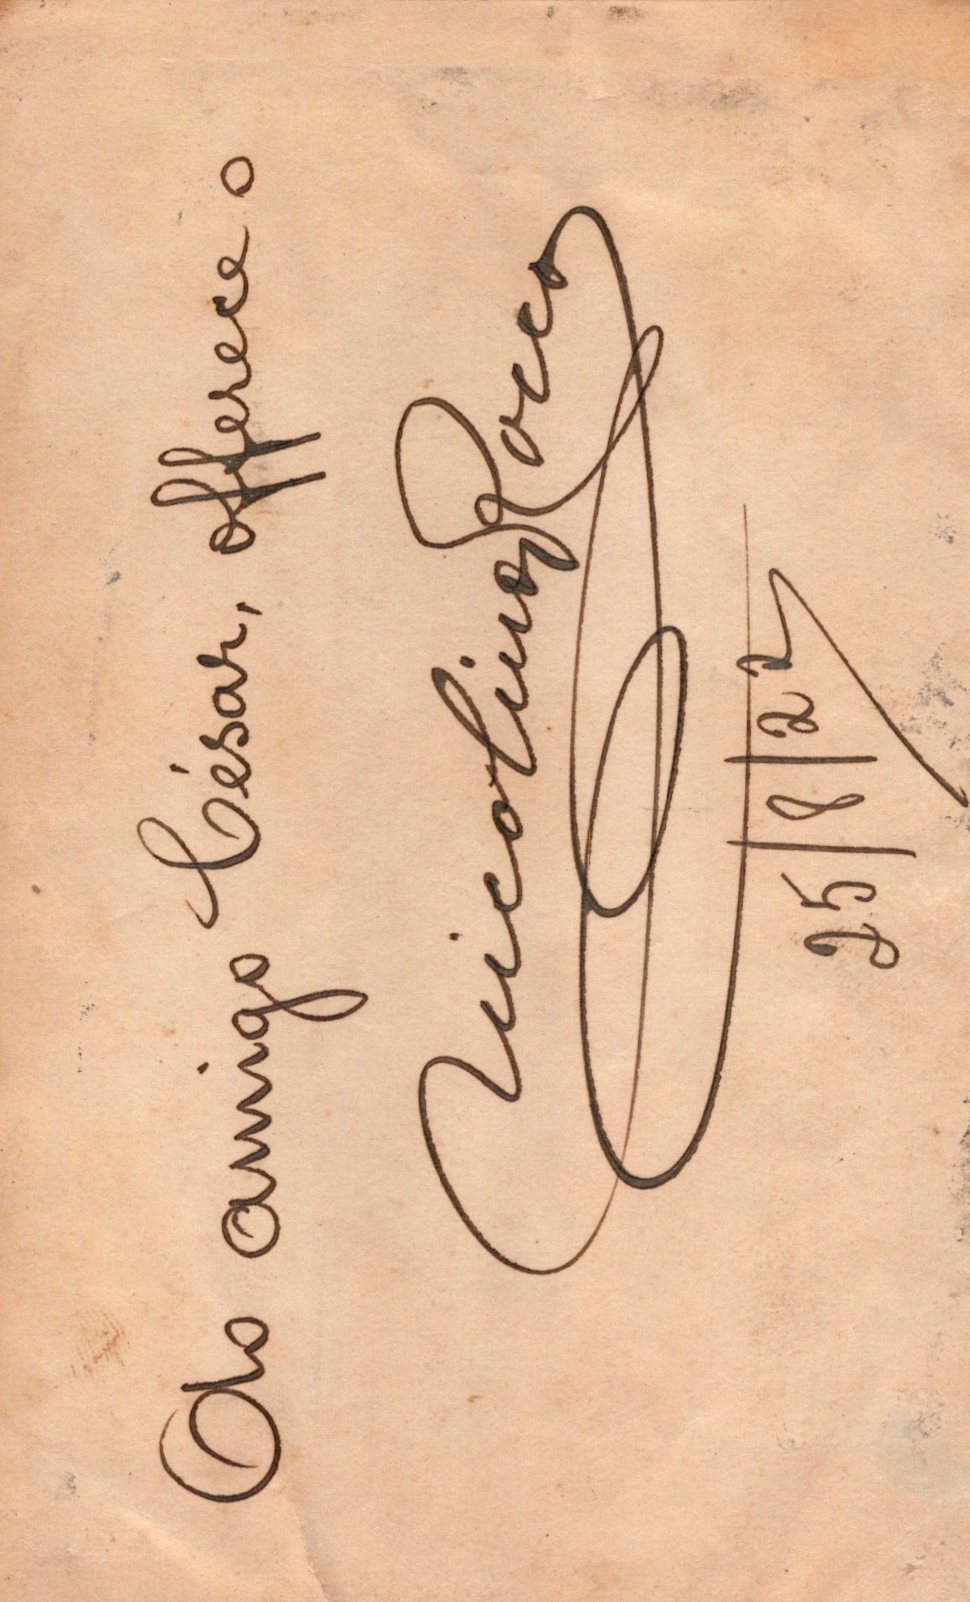 Ao amigo César, offerece o
Nicolino Rocco
25/8/22